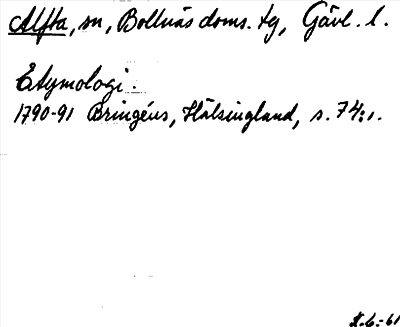 Alfta, sn, Bollnäs doms. tg, Gävl. l.
Etymologi.
1790-91 Bringéus, Hälsingland, s. 74:1.